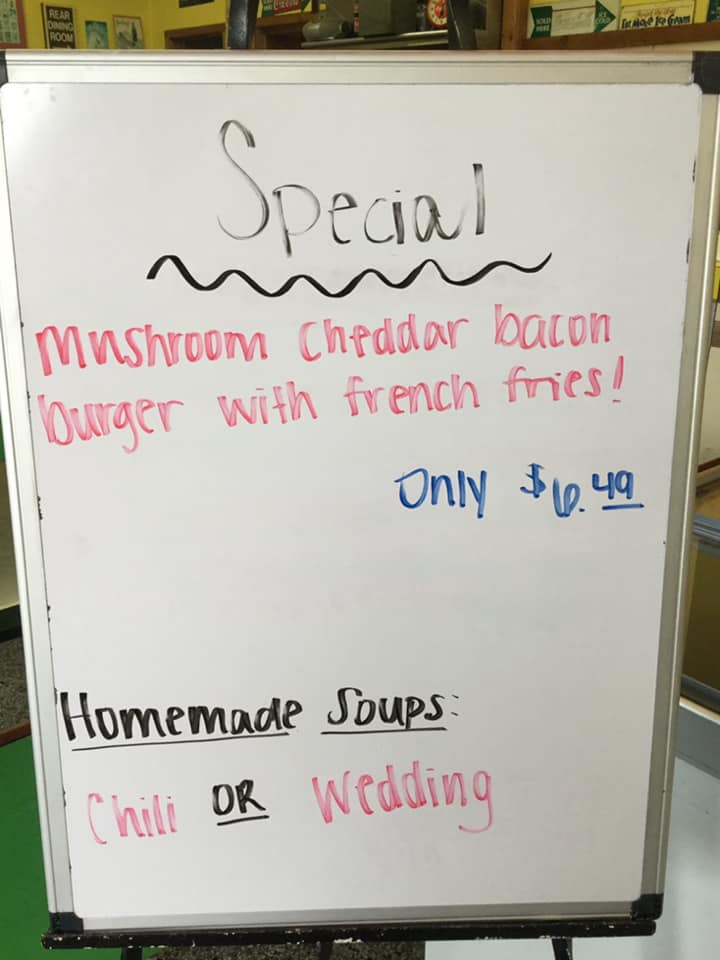 REAR
DINING
ROOM
SOLD
HERE
Special
Mushroom Cheddar bacon
burger with french fries!
Only $6.49
Homemade Soups:
Chili OR Wedding